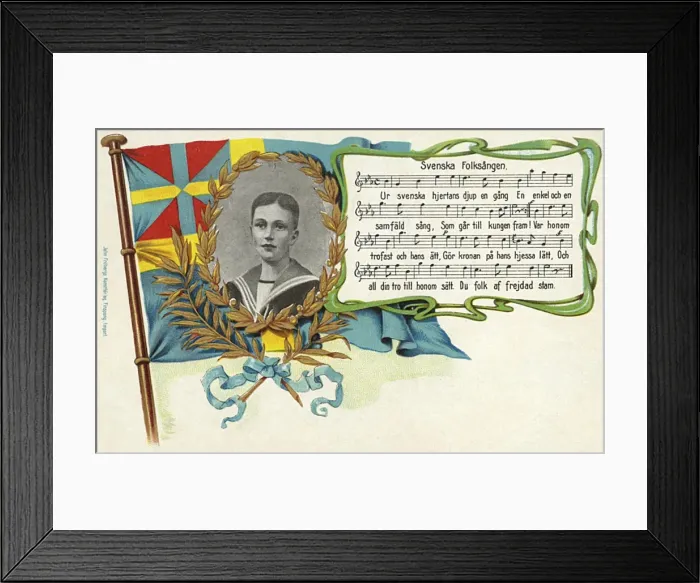 Svenska Folksången.
Ur svenska hjertans djup en gång En enkel och en
samfäld sång, Som går till kungen fram! Var honom
trofast och hans ätt, Gör kronan på hans hjessa lätt, Och
all din tro till honom sätt. Du folk af frejdad stam.